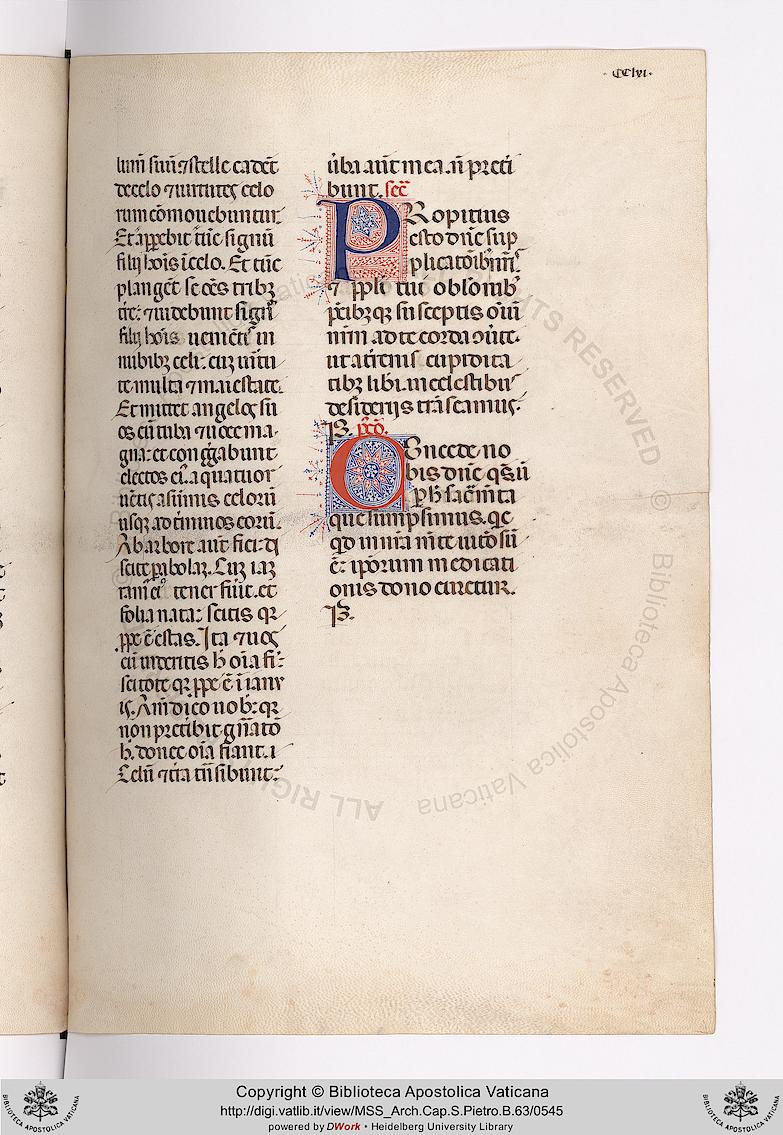 ·CClvi·
lum̄ suū ⁊ stelle cadēt
de celo ⁊ uirtutes celo
rum cōmouebuntur.
Et apparebit tūc signū
filij hōis ī celo. Et tūc
plangēt se oēs tribꝫ
tr̄e: ⁊ uidebunt signū
filij hōis uenientē in
nubibꝫ celi: cuꝫ uirtu
te multa ⁊ maiestate.
Et mittet angelos su
os cū tuba ⁊ uoce ma-
gna: et congregabunt
electos ei⁹. a quatuor
uētis a sūmis celorū
usqꝫ ad tīminos eorū.
Ab arbore aūt fici: di
scite parabolaꝫ. Cuꝫ iaꝫ
ram⁹ ei⁹ tener fūit. et
folia nata: scitis qꝛ
ꝓpe ē estas. Ita ⁊ uos
cū uideritis h̄ oīa fi:
scitote qꝛ ꝓpe ē ī ianu
is. Am̄ dico nob: qꝛ
non pretibit gn̄atō
h̄. donec oīa fiant.
Celū ⁊ tr̄a trāsibunt:
ūba aūt mea. n̄ preti
bunt. sec̄
PRopitius
esto dn̄e sup
plicatōibꝫ nr̄is.
⁊ ppl̄o tuo oblōnibꝫ
p̄cibꝫqꝫ susceptis oīuꝫ
nr̄m ad te corda ꝯūte.
ut a tr̄enis cupidita
tibꝫ libi. in celestibus
desiderijs trāseamus.
P. p̄cō.
COncede no
bis dn̄e qs̄. ut
p h̄ sacīnta
que sumpsimus. qc̄
qd in nr̄a mēte uitōsū
ē: ip̄orum medicati
onis dono curetur.
P.
ALL RIGHTS RESERVED © Biblioteca Apostolica Vaticana
BIBLIOTECA APOSTOLICA VATICANA
Copyright © Biblioteca Apostolica Vaticana
http://digi.vatlib.it/view/MSS_Arch.Cap.S.Pietro.B.63/0545
powered by DWork • Heidelberg University Library
BIBLIOTECA APOSTOLICA VATICANA